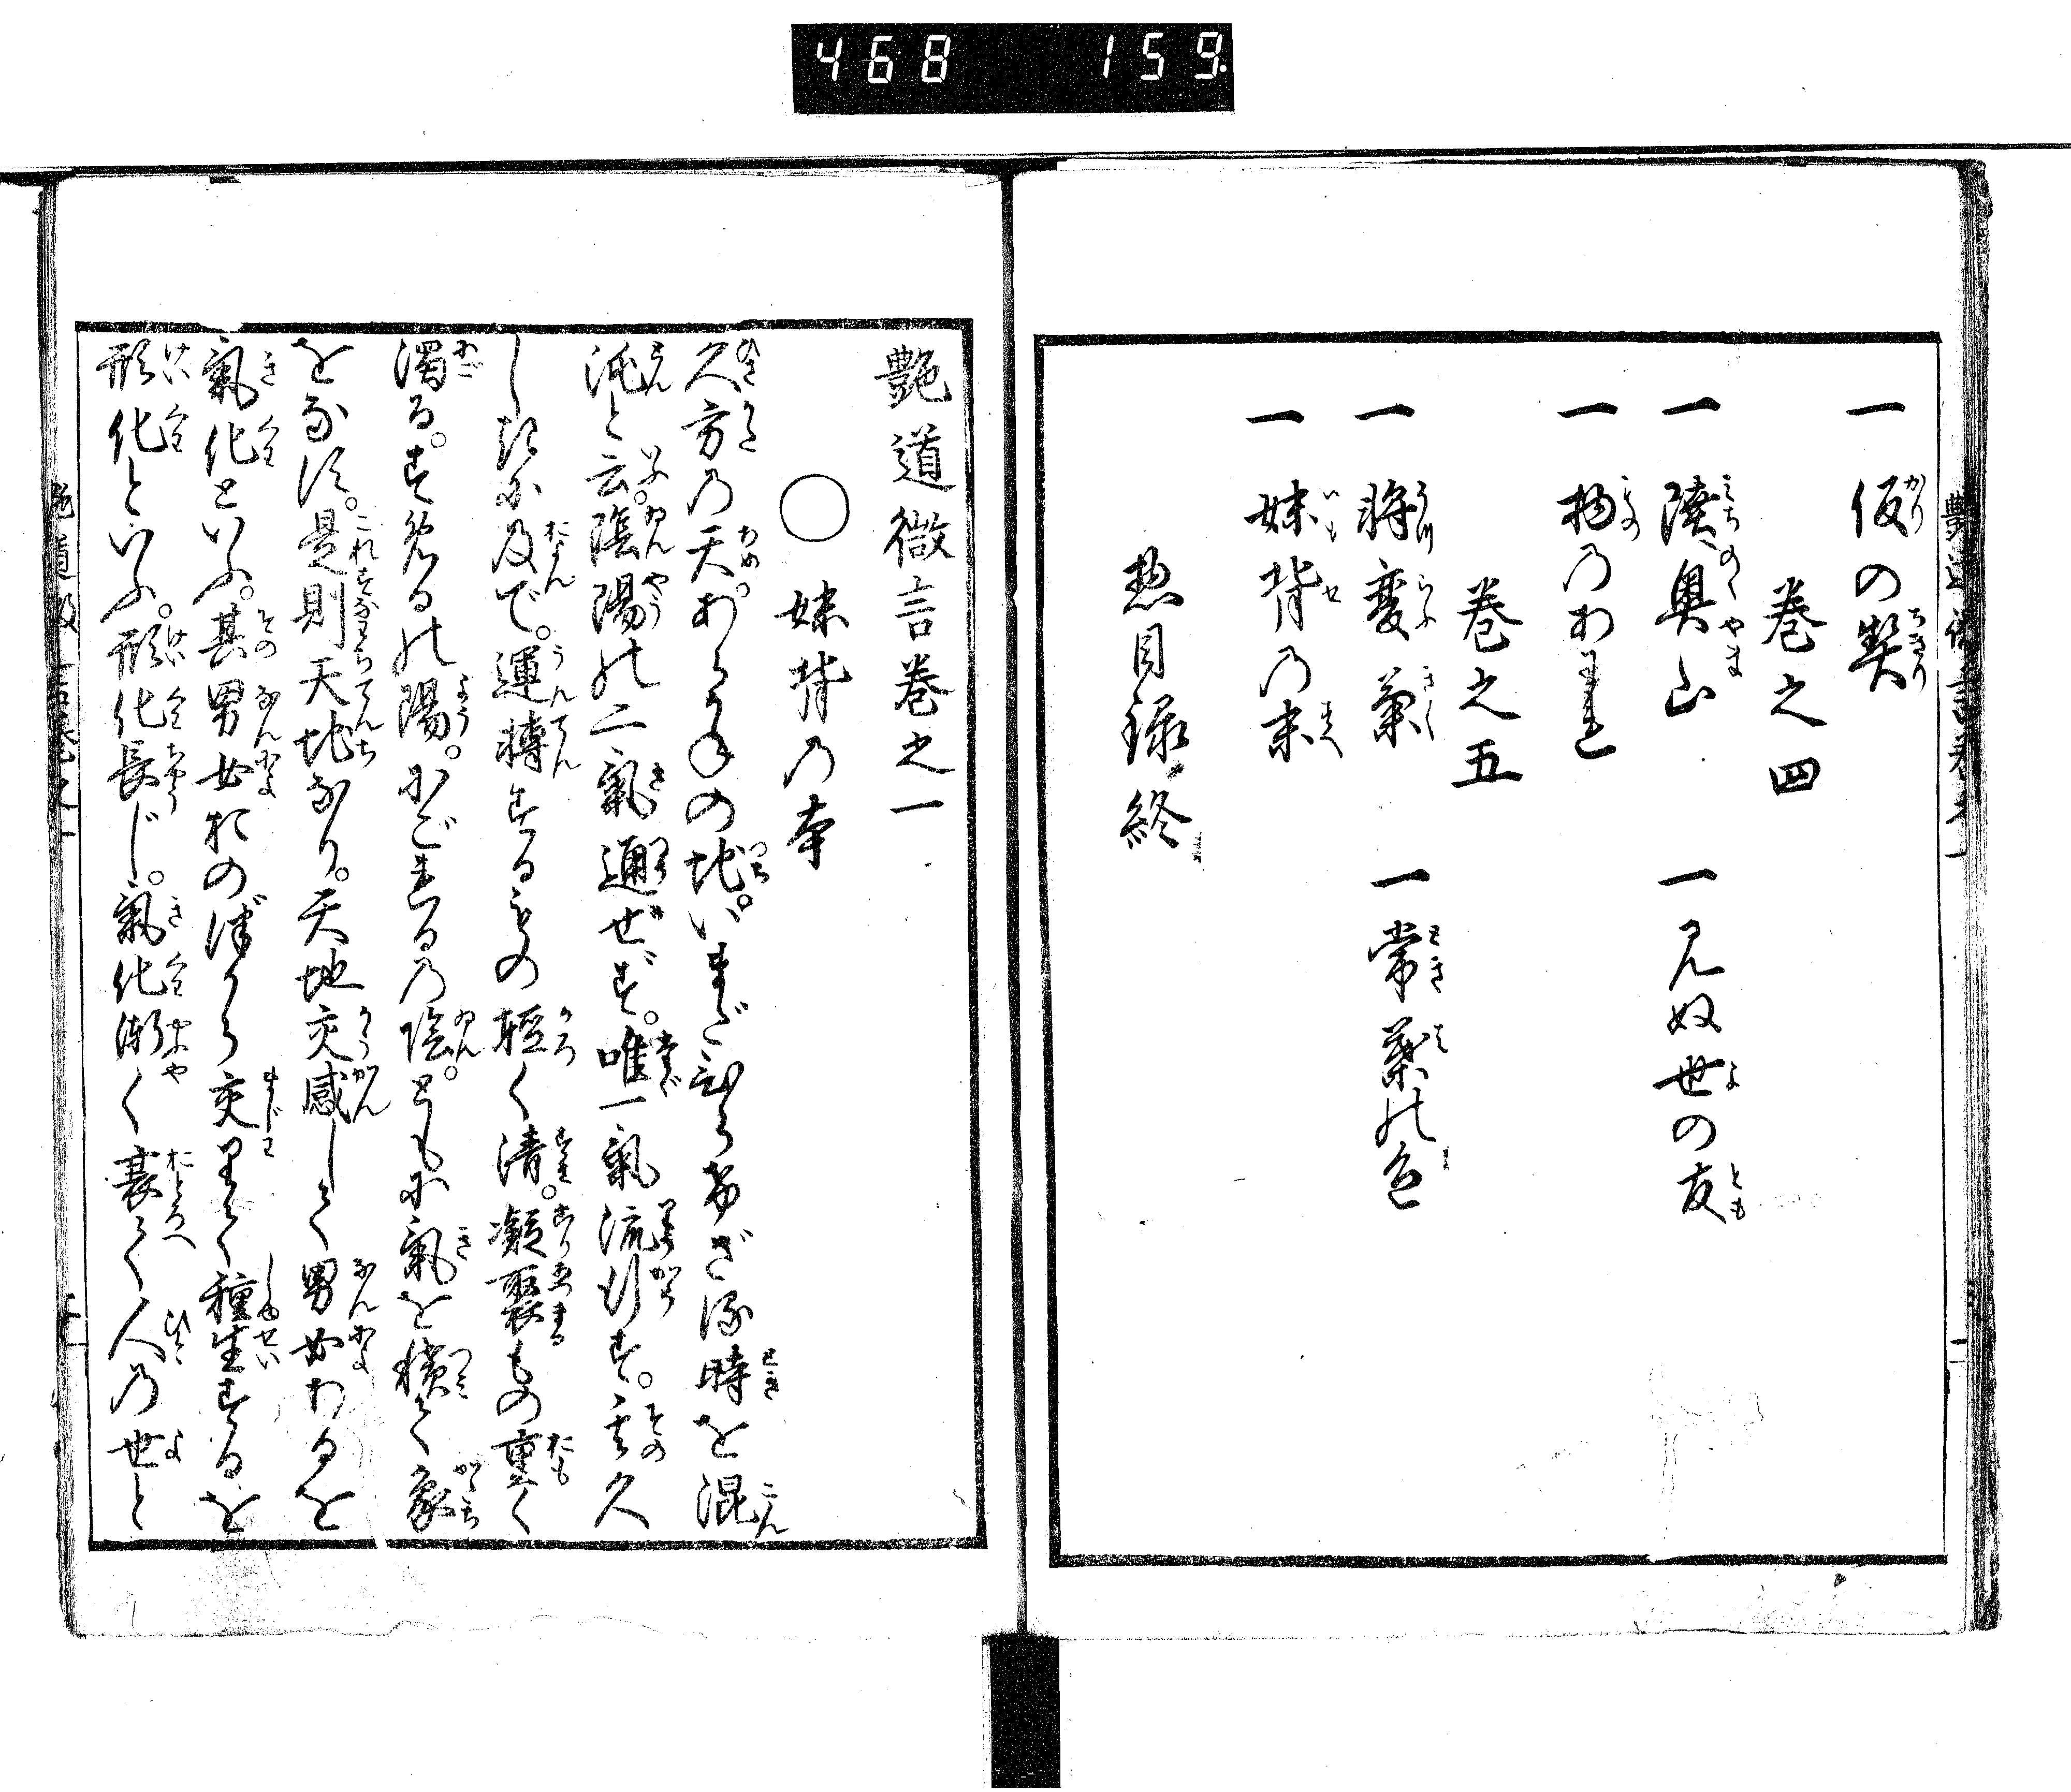 468 159
一 仮の契
巻之四
一 陸奥山 一 見ぬ世の友
一 物のあはれ
巻之五
一 移変菊 一 常葉の色
一 妹背の末
惣目録終
艶道微言巻之一
○ 妹背の本
久方の天。あらかねの地。いまだひらけざる時を混
沌と云。陰陽の二氣通ぜず。唯一氣流行す。其久
しきに及で。運轉するもの軽く清。凝聚もの重く
濁る。すめるの陽。にごれるの陰。ともに氣を積て象
をなす。是則天地なり。天地交感して男女あるを
氣化といふ。其男女おのづから交りて種生するを
形化といふ。形化長じ。氣化漸く衰て人の世と